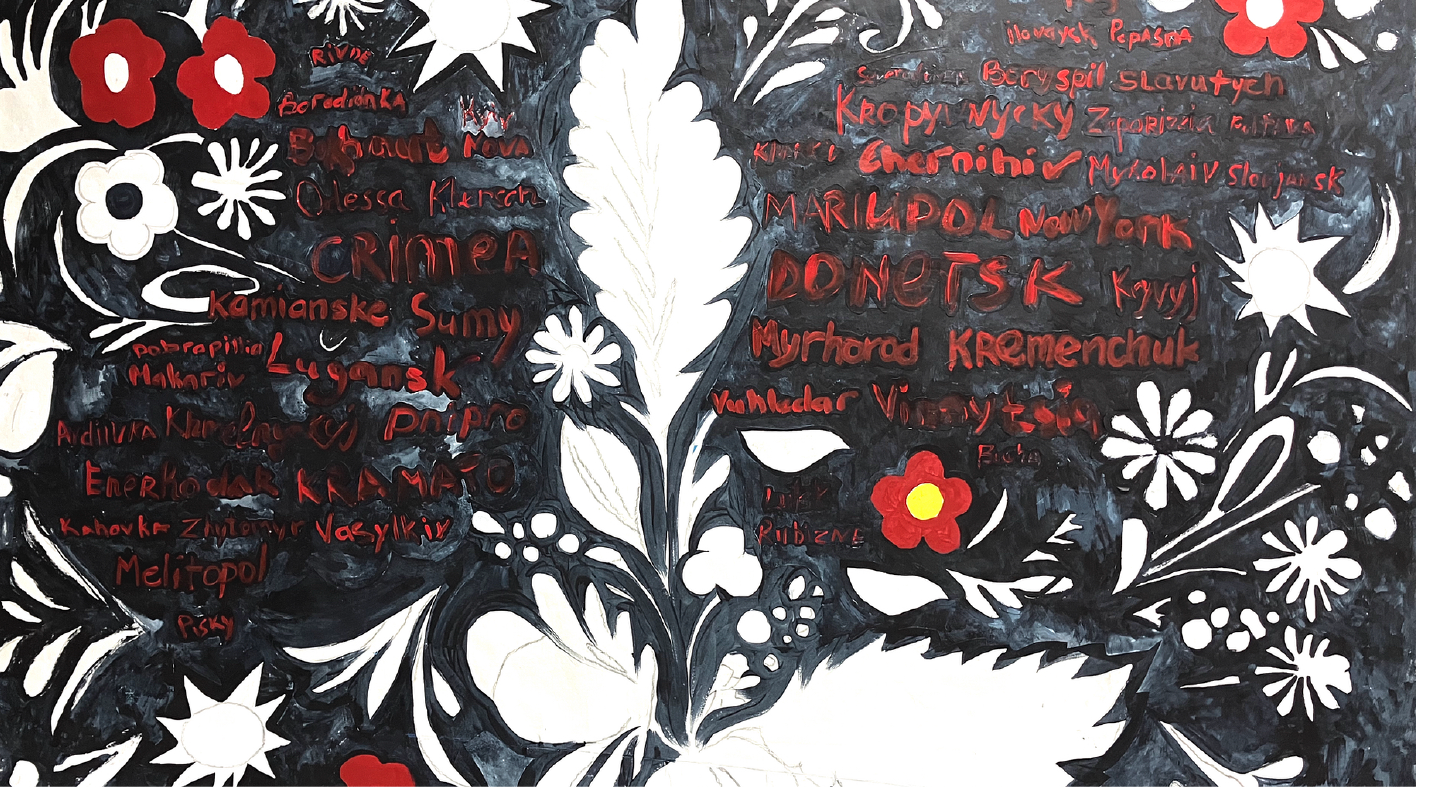 RIVNE
Borodianka
Kyiv
Bakhmut Nova
Odessa Kherson
CRimeA
Kamianske Sumy
Dobropillia Lugansk
Makariv
Avdiivka Khmelnyckyj Dnipro
Enerhodar KRAMATO
Kahovka Zhytomyr Vasylkiv
Melitopol
Pisky
PopASNA
Boryspil Slavutych
KROPYVNYCKY Zaporizzia Poltava
Chernihiv Mykolaiv Slovjansk
MARIUPOL New York
DONeTSK Kyvyj
Myrhorod KRemenchuk
Vuhledar Vinnytsia
Bucha
RUBIZNE